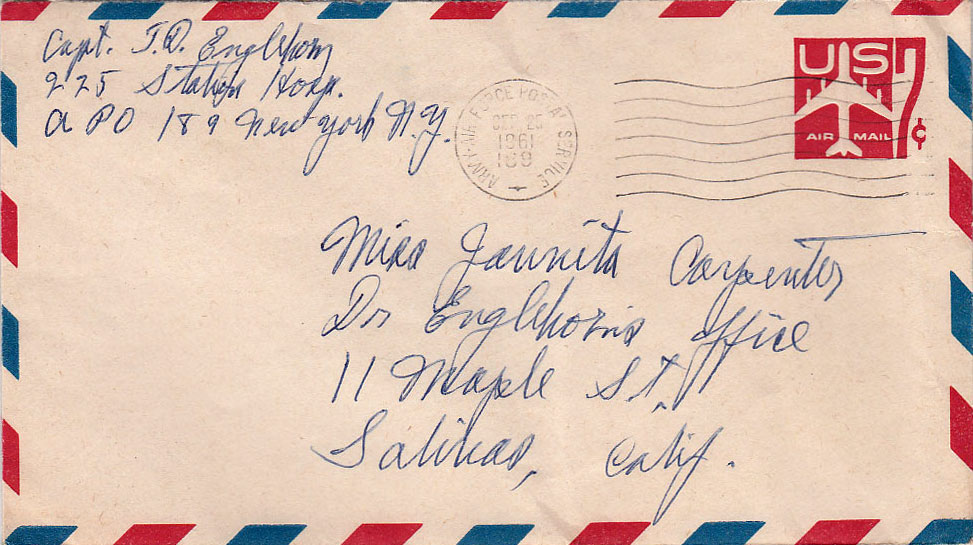 Capt. T.D. Englehorn
225 Station Hosp.
APO 189 New York N.Y.
ARMY-AIR FORCE POSTAL SERVICE
SEP 25
1961
189
US 7¢
AIR MAIL
Miss Jaunita Carpenter
Dr Englehorns office
11 Maple St.
Salinas, Calif.